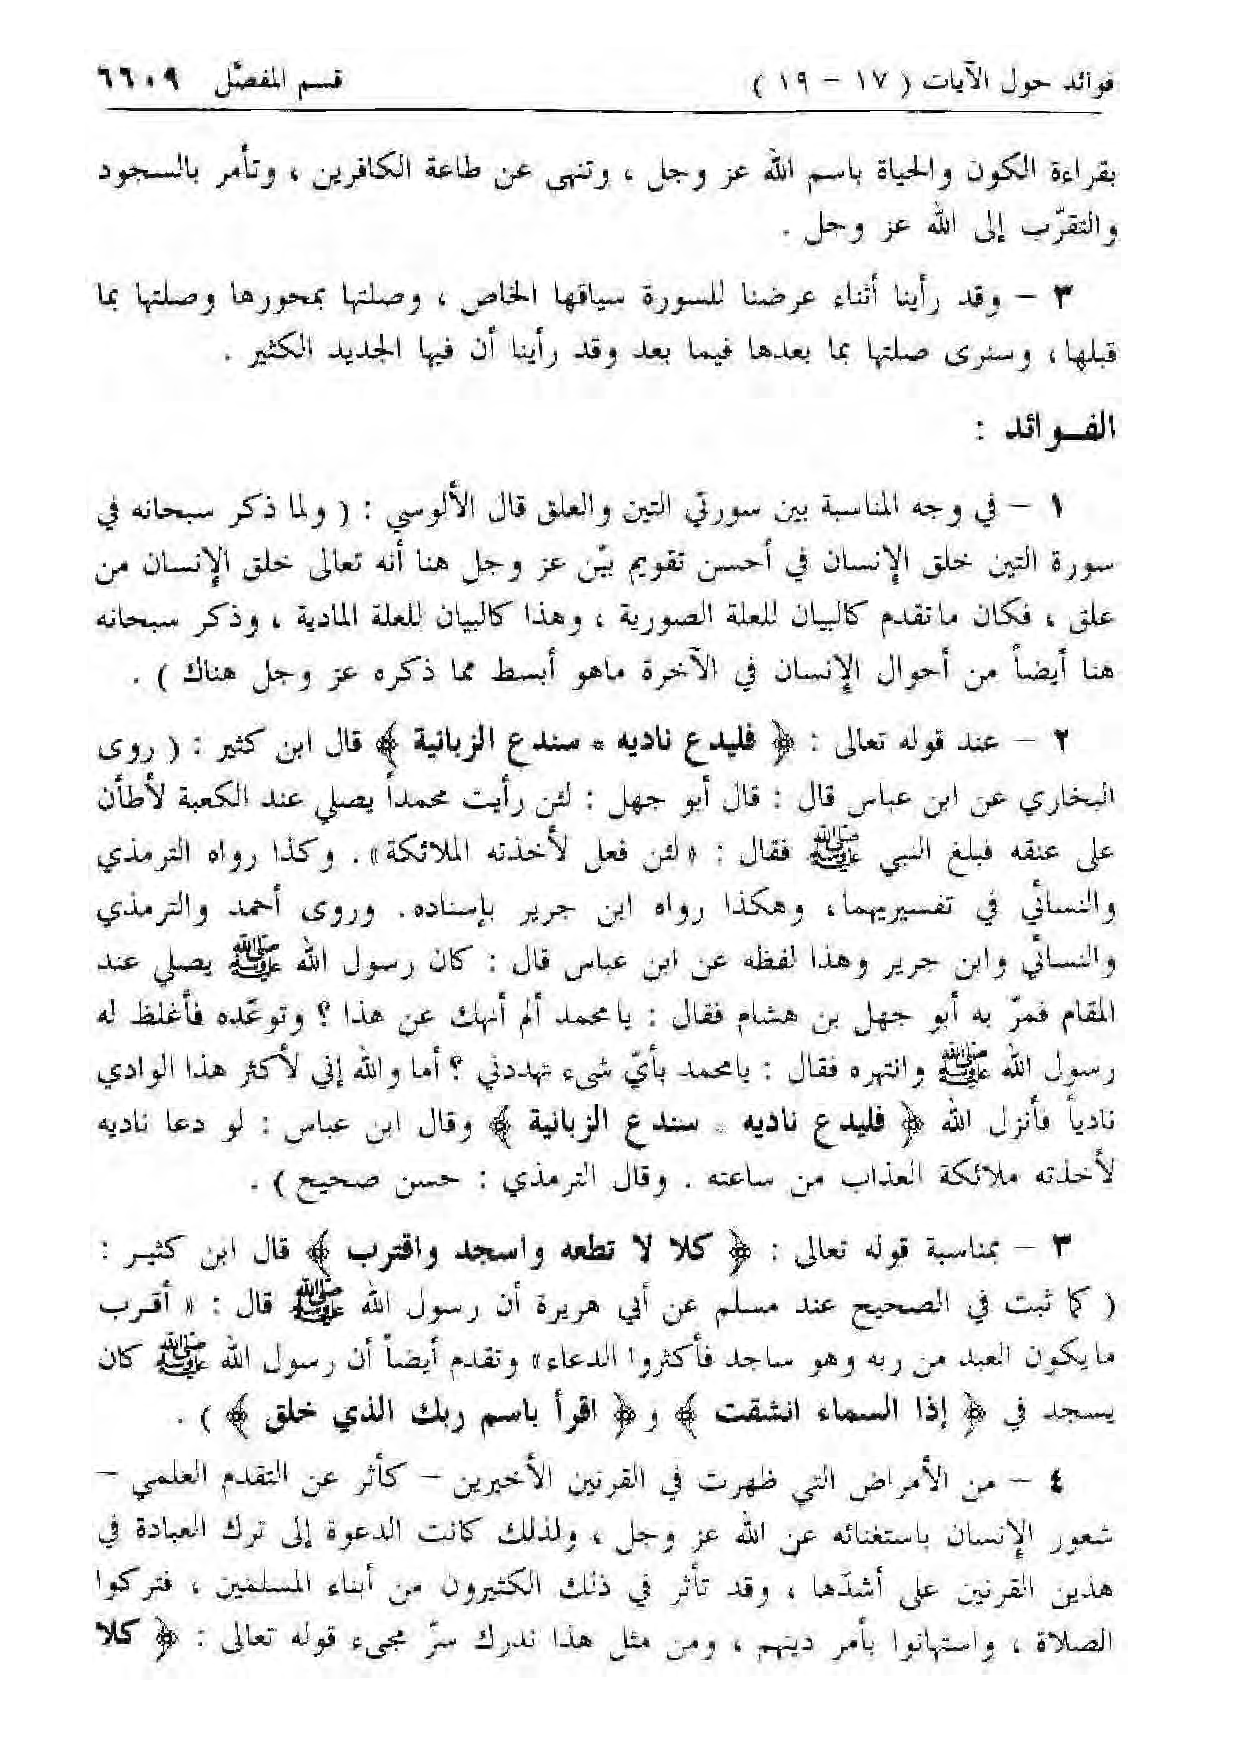 فوائد حول الآيات ( ١٧ – ١٩ ) قسم المفصّل ٦٦٠٩
بقراءة الكون والحياة باسم الله عز وجل ، وتنهى عن طاعة الكافرين ، وتأمر بالسجود
والتقرّب إلى الله عز وجل .
٣ – وقد رأينا أثناء عرضنا للسورة سياقها الخاص ، وصلتها بمحورها وصلتها بما
قبلها ، وسنرى صلتها بما بعدها فيما بعد وقد رأينا أن فيها الجديد الكثير .
الفـوائد :
١ – في وجه المناسبة بين سورتي التين والعلق قال الألوسي : ( ولما ذكر سبحانه في
سورة التين خلق الإنسان في أحسن تقويم بيّن عز وجل هنا أنه تعالى خلق الإنسان من
علق ، فكان ماتقدم كالبيان للعلة الصورية ، وهذا كالبيان للعلة المادية ، وذكر سبحانه
هنا أيضاً من أحوال الإنسان في الآخرة ماهو أبسط مما ذكره عز وجل هناك ) .
٢ – عند قوله تعالى : ﴿ فليدع ناديه * سندع الزبانية ﴾ قال ابن كثير : ( روى
البخاري عن ابن عباس قال : قال أبو جهل : لئن رأيت محمداً يصلي عند الكعبة لأطأن
على عنقه فبلغ النبي ﷺ فقال : «لئن فعل لأخذته الملائكة» . وكذا رواه الترمذي
والنسائي في تفسيريهما، وهكذا رواه ابن جرير بإسناده. وروى أحمد والترمذي
والنسائي وابن جرير وهذا لفظه عن ابن عباس قال : كان رسول الله ﷺ يصلي عند
المقام فمرّ به أبو جهل بن هشام فقال : يامحمد ألم أنهك عن هذا ؟ وتوعّده فأغلظ له
رسول الله ﷺ وانتهره فقال : يامحمد بأيّ شىء تهددني ؟ أما والله إني لأكثر هذا الوادي
نادياً فأنزل الله ﴿ فليدع ناديه * سندع الزبانية ﴾ وقال ابن عباس : لو دعا ناديه
لأخذته ملائكة العذاب من ساعته . وقال الترمذي : حسن صحيح ) .
٣ – بمناسبة قوله تعالى : ﴿ كلا لا تطعه واسجد واقترب ﴾ قال ابن كثيـر :
( كما ثبت في الصحيح عند مسلم عن أبي هريرة أن رسول الله ﷺ قال : « أقـرب
مايكون العبد من ربه وهو ساجد فأكثروا الدعاء» وتقدم أيضاً أن رسول الله ﷺ كان
يسجد في ﴿ إذا السماء انشقت ﴾ و﴿ اقرأ باسم ربك الذي خلق ﴾ ) .
٤ – من الأمراض التي ظهرت في القرنين الأخيرين – كأثر عن التقدم العلمي –
شعور الإنسان باستغنائه عن الله عز وجل ، ولذلك كانت الدعوة إلى ترك العبادة في
هذين القرنين على أشدّها ، وقد تأثر في ذلك الكثيرون من أبناء المسلمين ، فتركوا
الصلاة ، واستهانوا بأمر دينهم ، ومن مثل هذا ندرك سرّ مجىء قوله تعالى : ﴿ كلا